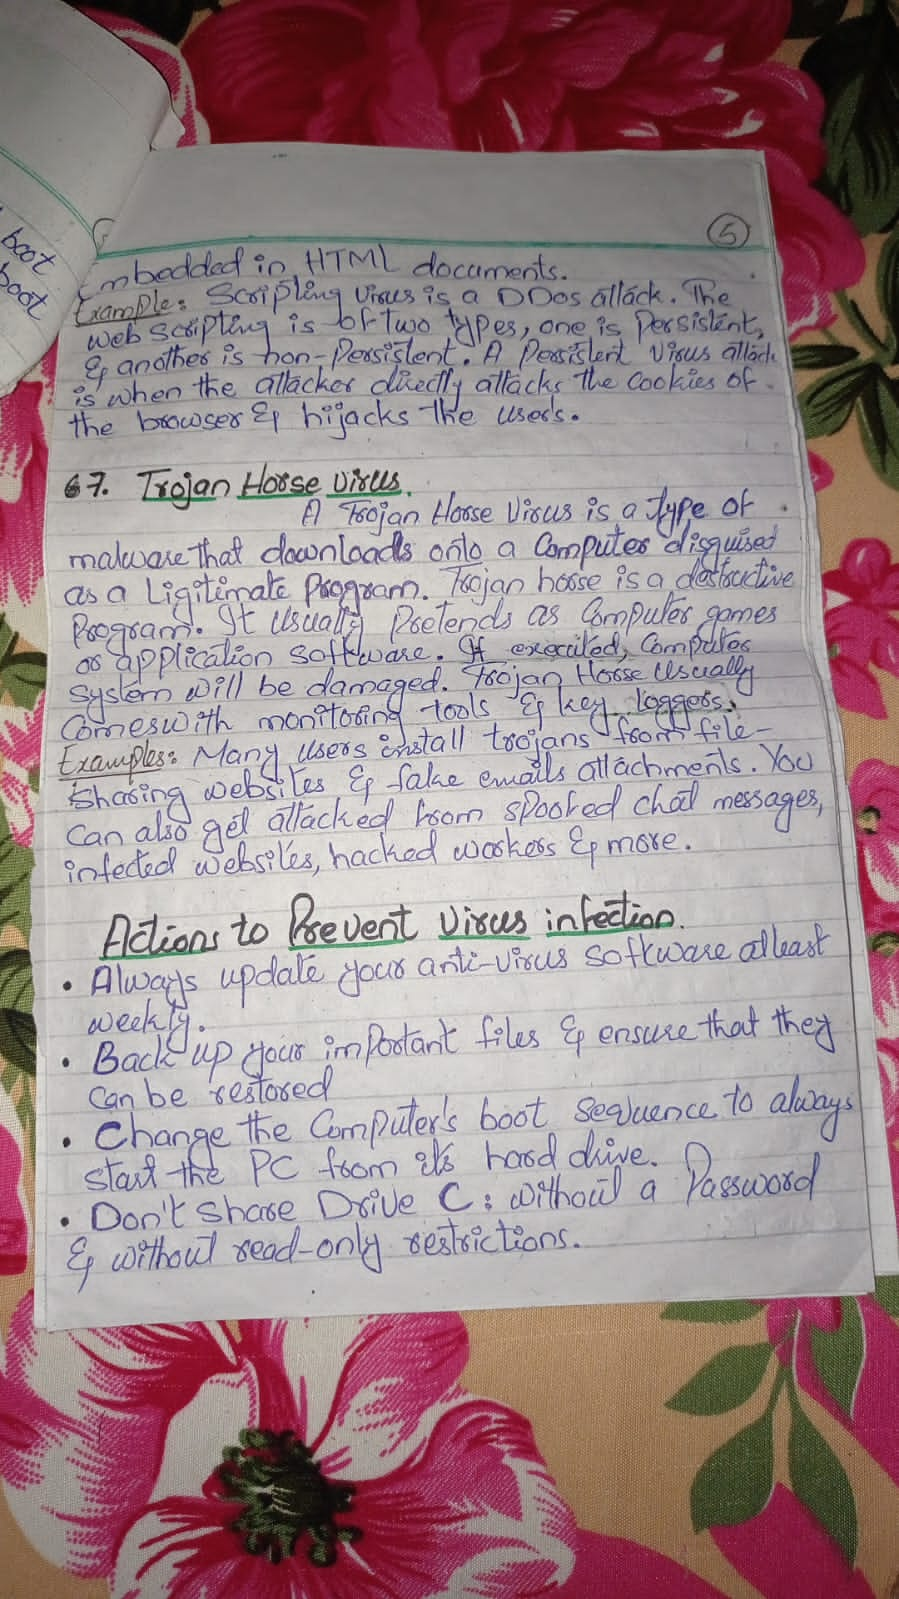 boot
boot
5
Embedded in HTML documents.
Example: Scripting virus is a DDos attack. The
web scripting is of two types, one is Persistent,
& another is non-Persistent. A Persistent virus attack
is when the attacker directly attacks the cookies of
the browser & hijacks the users.
67. Trojan Horse Virus.
A Trojan Horse Virus is a type of
malware that downloads onto a Computer disguised
as a Ligitimate Program. Trojan horse is a destructive
Program. It usually Pretends as Computer games
or application software. If executed, Computer
system will be damaged. Trojan Horse usually
comes with monitoring tools & key loggers.
Examples: Many users install trojans from file-
sharing websites & fake emails attachments. You
can also get attacked from spoofed chat messages,
infected websites, hacked workers & more.
Actions to Prevent Virus infection.
• Always update your anti-virus software atleast
weekly.
• Back up your important files & ensure that they
can be restored
• Change the Computer's boot sequence to always
start the PC from it's hard drive.
• Don't share Drive C: without a Password
& without read-only restrictions.